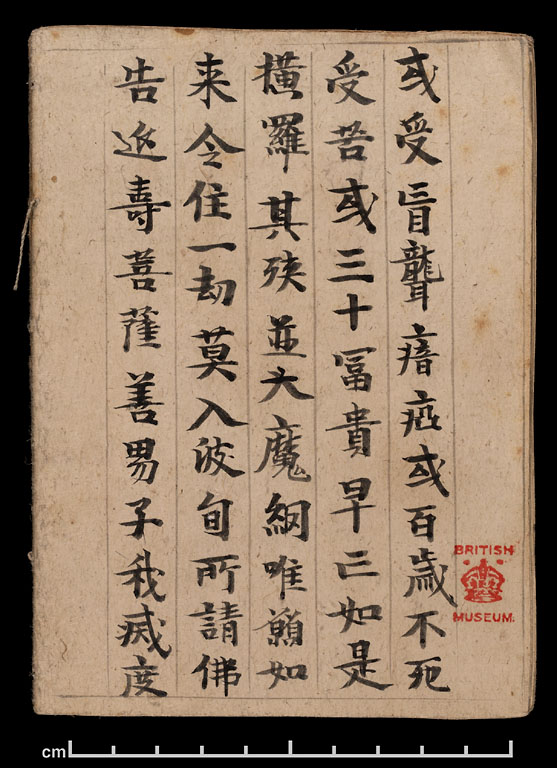 或受盲聾瘖瘂或百歲不死
受苦或三十冨貴早亡如是
撗羅其殃並天魔網唯願如
来令住一劫莫入波旬所請佛
告延壽菩薩善男子我滅度
BRITISH
MUSEUM.
cm